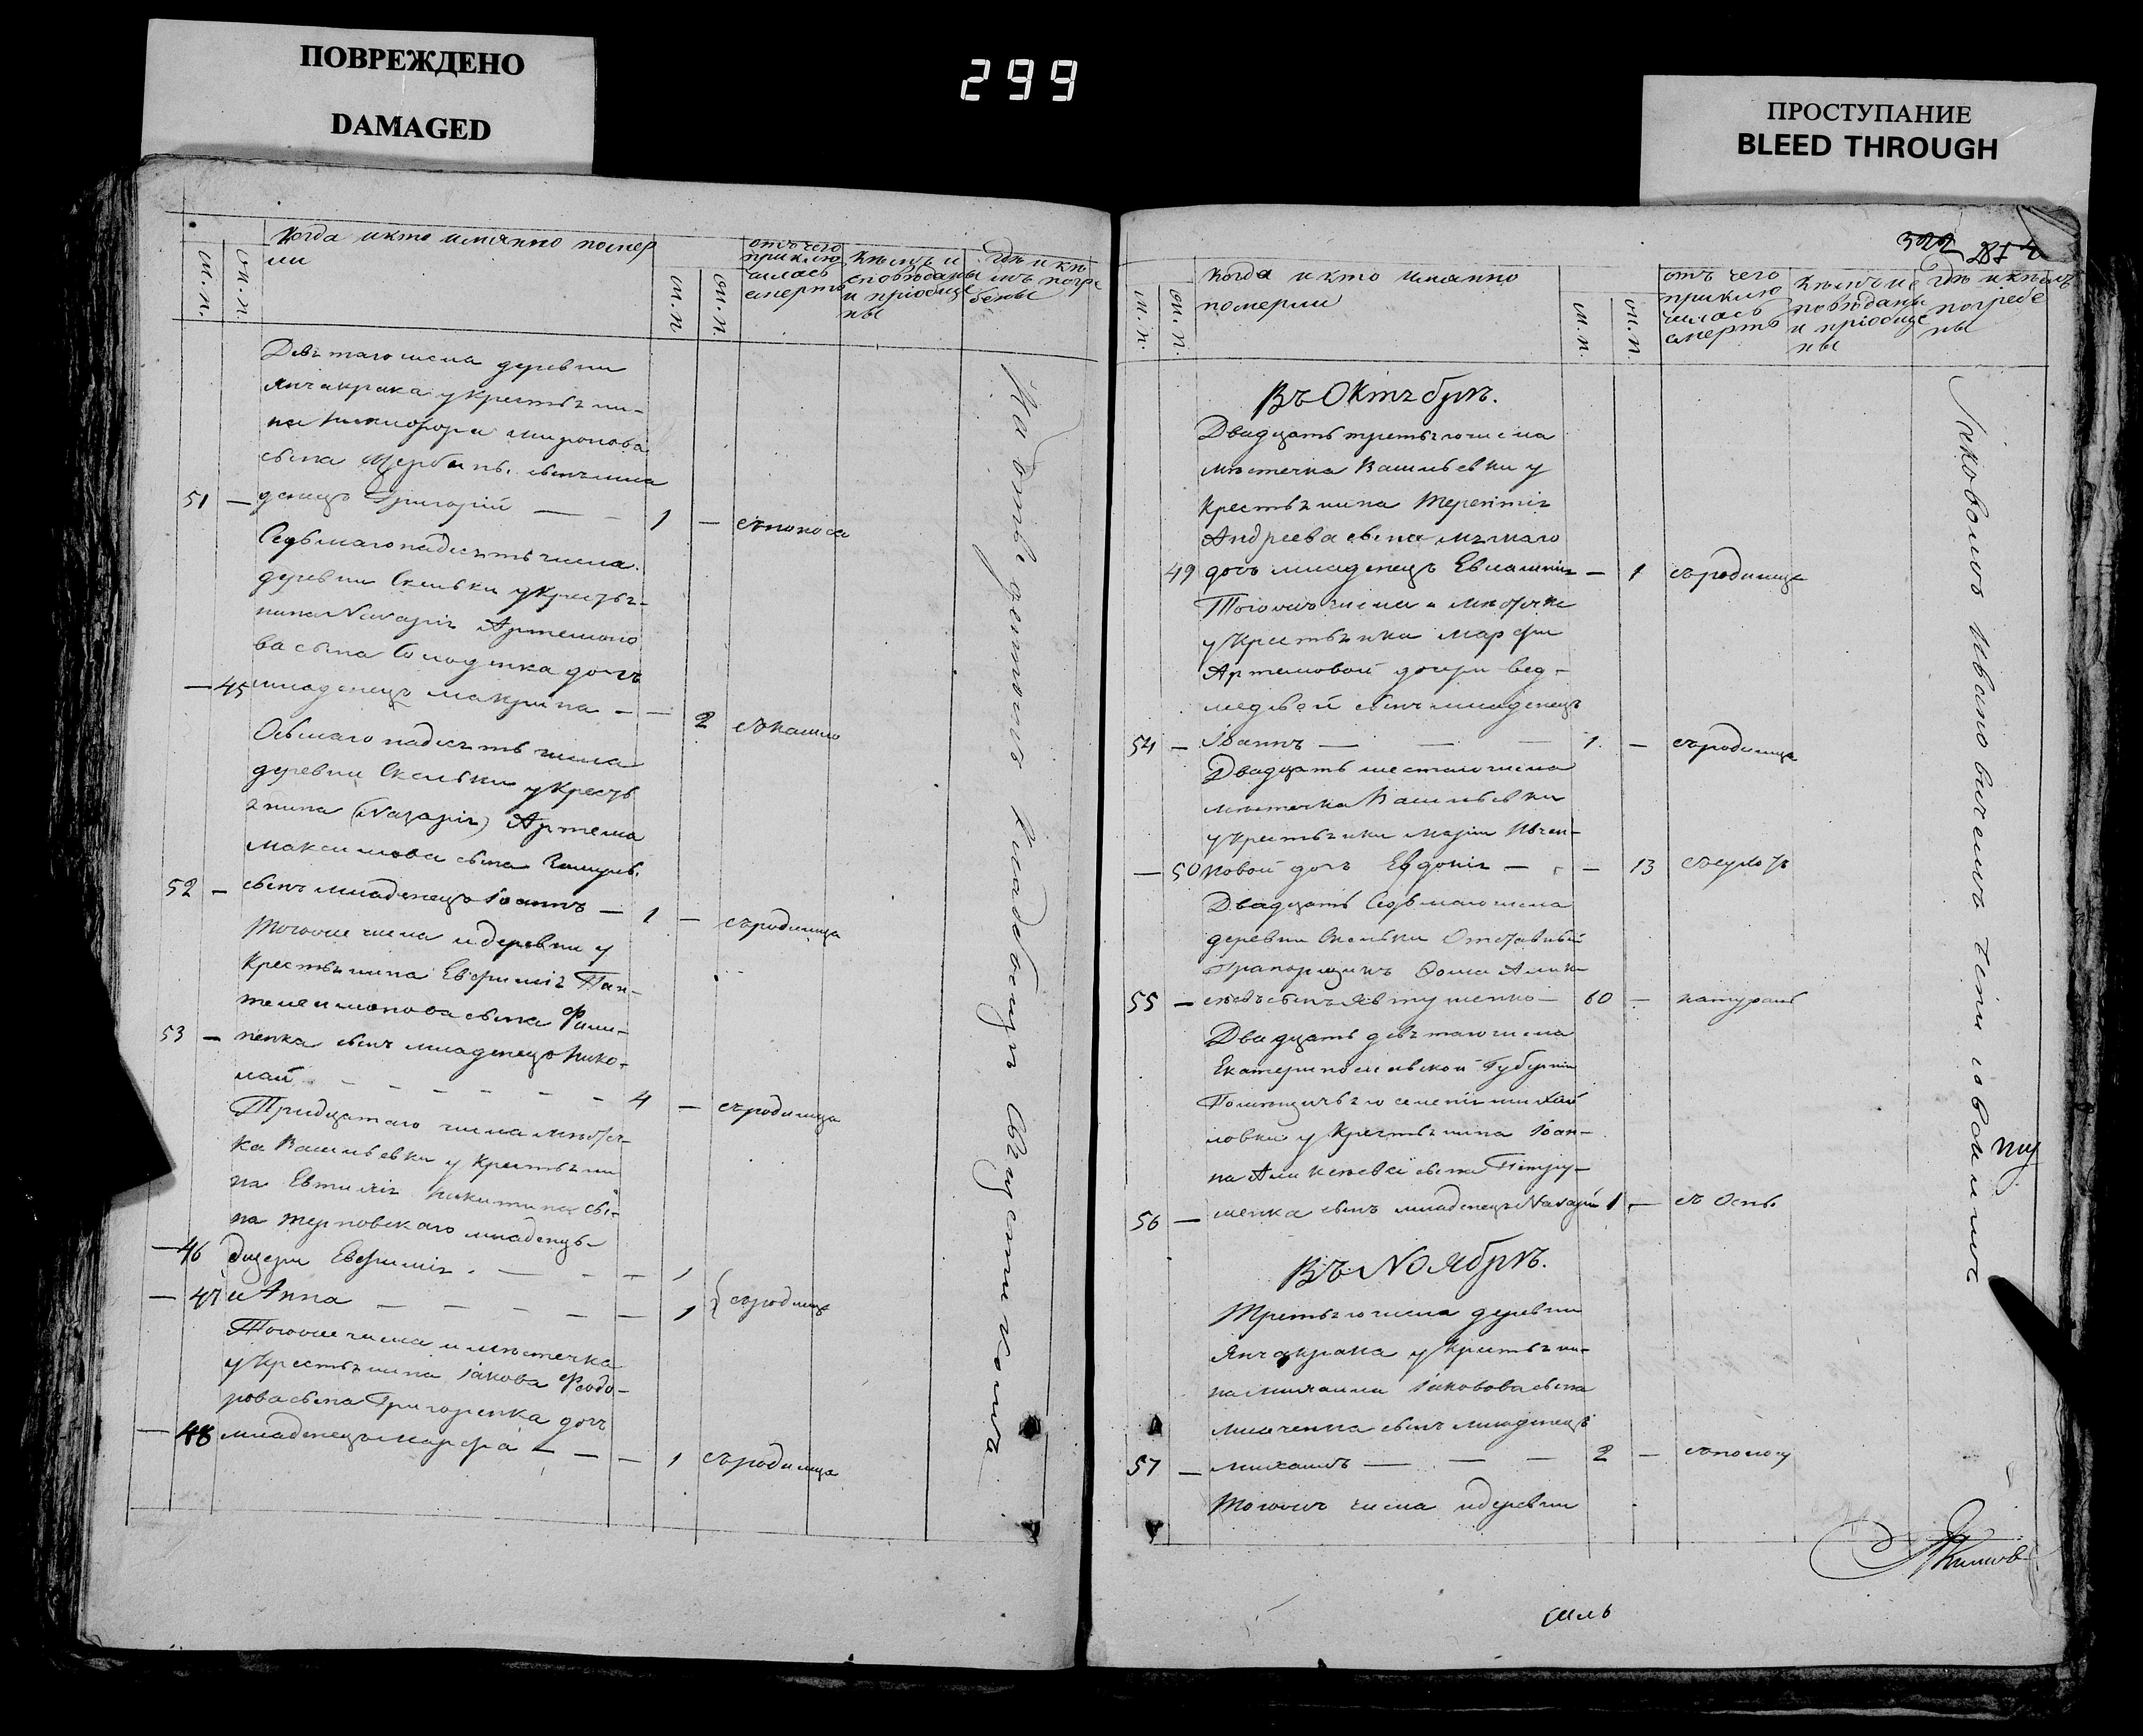 ПОВРЕЖДЕНО
DAMAGED
299
ПРОСТУПАНИЕ
BLEED THROUGH
когда и кто имянно помер
ли
м. п.
ж. п.
м. п.
ж. п.
отъ чего
приклю
чилась
смерть
кѣмъ и
сповѣданы
и пріобще
ны
гдѣ и кѣ
мъ погре
бены
Девятаго числа деревни
Янчакрака у крестьяни-
на Никифора Миронова
сына Щербины сынъ мла
51 — денецъ Григорій — — 1 — съ поноса
Седьмагонадесять числа
деревни Скельки у крестья-
нина Назарія Артемоно
ва сына Солоденка дочь
— 45 младенецъ Макрина — — 2 съ кашлю
Осьмагонадесять числа
деревни Скельки у кресть
янина (Назарія) Артема
Максимова сына
52 — сынъ младенецъ Іоаннъ — 1 — съ родимца
Тогоже числа и деревни у
крестьянина Евфимія Пан-
телеимонова сына Фили-
53 — пенка сынъ младенецъ Нико-
лай — — — — — — 4 — съ родимца
Тридцатаго числа мѣстеч-
ка Васильевки у крестьяни
на Евтихія Никитина сы-
на Терновскаго младенцы
— 46 дщери Евфимія — — — 1
— 47 и Анна — — — — — 1 { съ родимца
Тогоже числа и мѣстечка
у крестьянина Іакова Ѳеодо-
рова сына Григоренка дочь
— 48 младенецъ Марфа — — — 1 съ родимца
На отведенномъ кладбищѣ Священникомъ
322
м. п.
ж. п.
когда и кто имянно
померли
м. п.
ж. п.
отъ чего
приклю
чилась
смерть
кѣмъ ис
повѣданы
и пріобще
ны
гдѣ и кѣмъ
погребе
ны
Въ Октябрѣ.
Двадцать третьяго числа
мѣстечка Васильевки у
крестьянина Терентія
Андреева сына
49 дочь младенецъ Евлампія — 1 съ родимца
Тогожъ числа и мѣстечка
у крестьянки Марфи
Артемовой дочери Вед-
медвой сынъ младенецъ
54 — Іоаннъ — — — 1 — съ родимца
Двадцать шестаго числа
мѣстечка Васильевки
у крестьянки Маріи Ивчен-
— 50 ковой дочь Евдокія — — 13
Двадцать седьмаго числа
деревни Скельки Отставный
Прапорщикъ Ѳома Алек-
55 — сѣевъ сынъ Явтушенко — 60 — натурал.
Двадцать девятаго числа
Екатеринославской Губерніи
Помѣщичьяго селенія Михай
ловки у крестьянина Іоан-
на Алексѣева сына Петру-
56 — шенка сынъ младенецъ Назарій 1 — съ Оспы
Въ Ноябрѣ.
Третьяго числа деревни
Янчакрака у крестьяни-
на Михаила Іаковова сына
Милченка сынъ младенецъ
57 — Михаилъ — — — 2 — съ поносу
Тогожъ числа и деревни
Іаковомъ Ивановичемъ